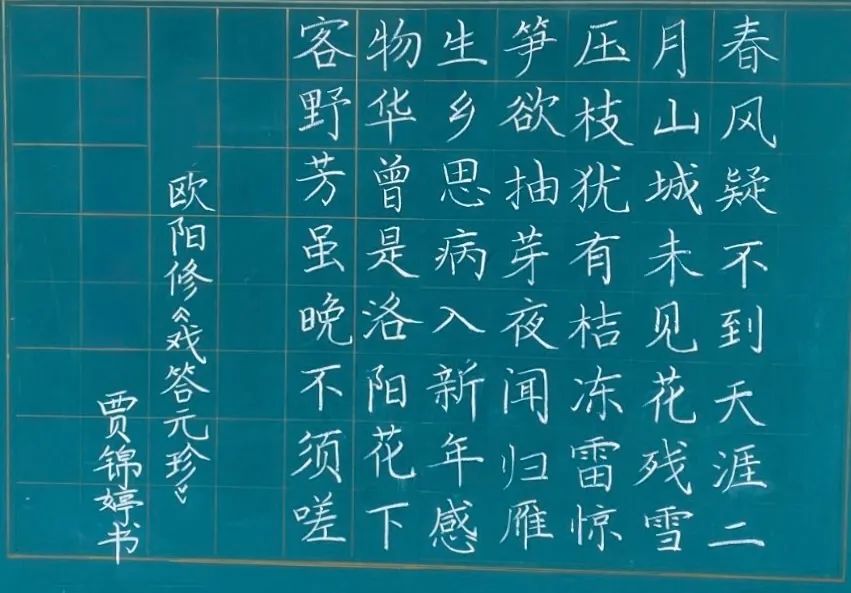 春风疑不到天涯二
月山城未见花残雪
压枝犹有桔冻雷惊
笋欲抽芽夜闻归雁
生乡思病入新年感
物华曾是洛阳花下
客野芳虽晚不须嗟
欧阳修《戏答元珍》
贾锦婷书